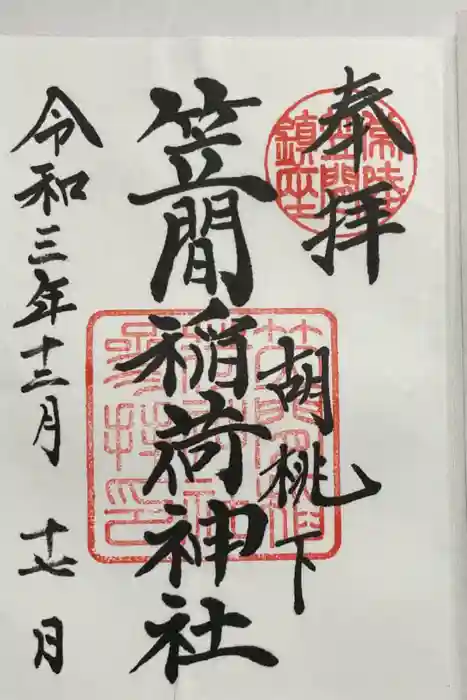 奉拝
常陸
笠間
鎮座
胡桃下
笠間稲荷神社
參拝印
令和三年十二月十七月